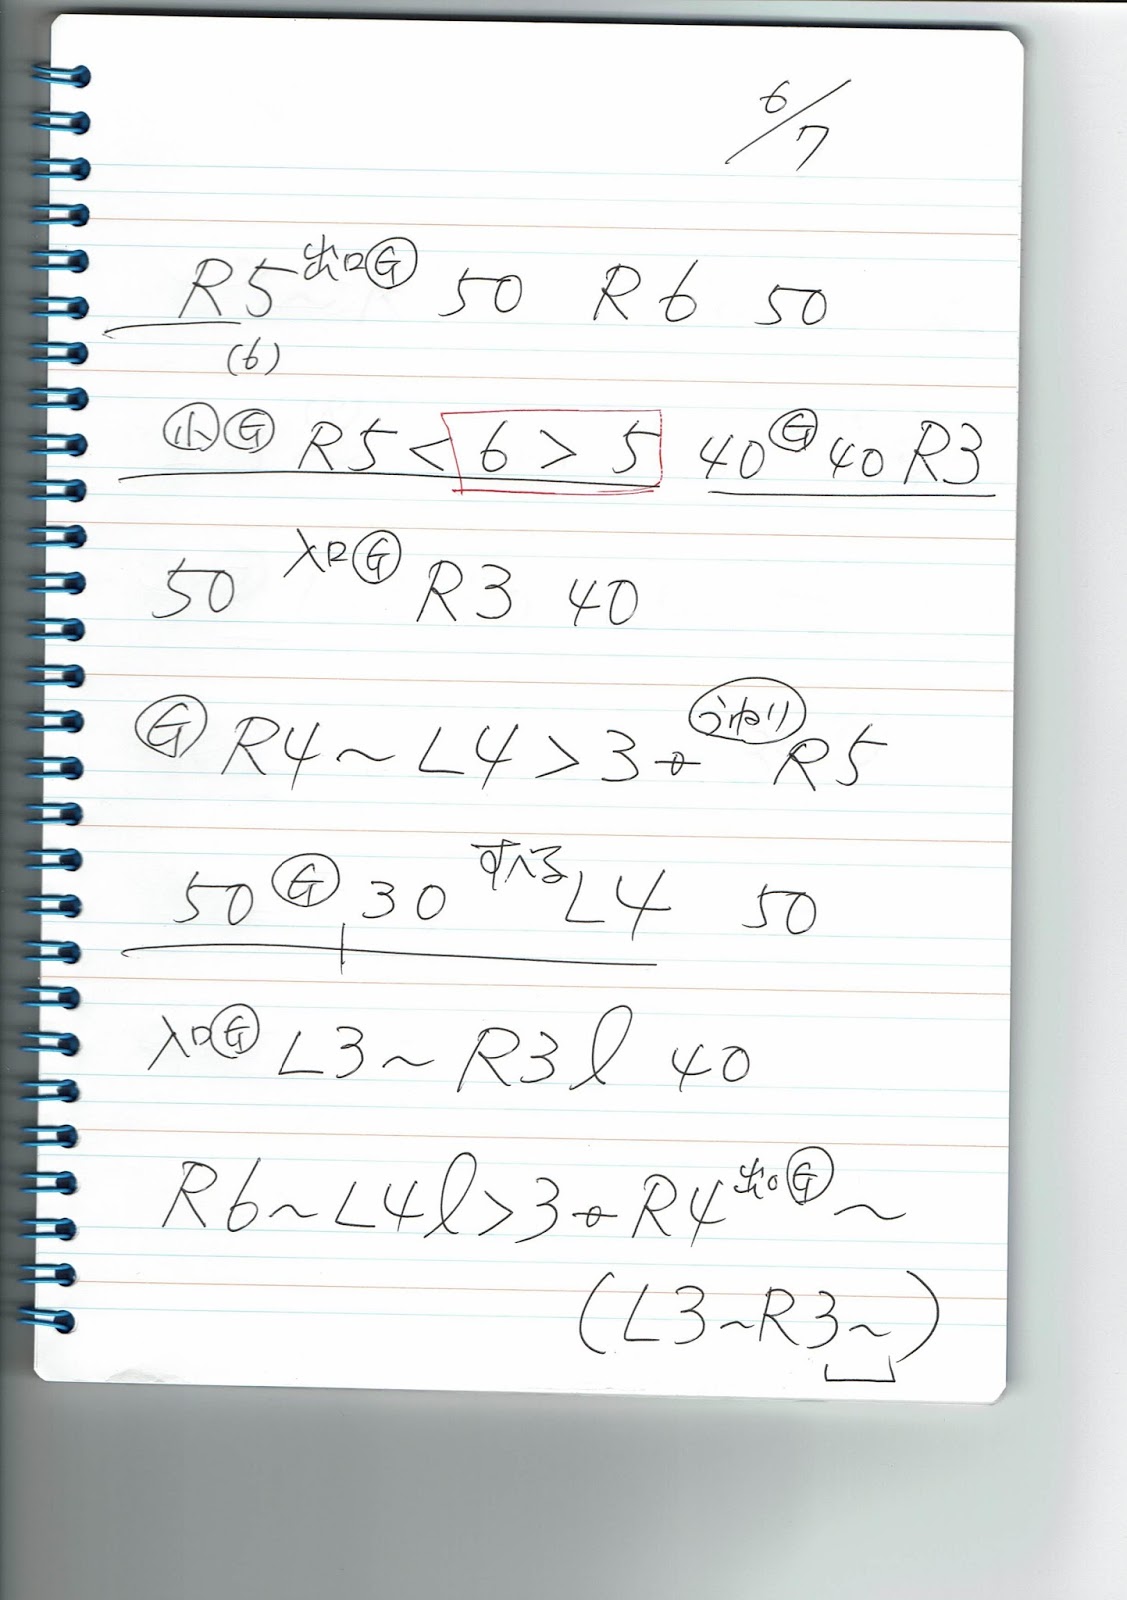 6/7
R5 出口Ⓖ 50 R6 50
(6)
㋛Ⓖ R5<6>5 40 Ⓖ 40 R3
50 入口Ⓖ R3 40
Ⓖ R4~L4>3 うねり R5
50 Ⓖ 30 すべる L4 50
入口Ⓖ L3~R3l 40
R6~L4l>3 R4 出口Ⓖ ~
(L3~R3~)